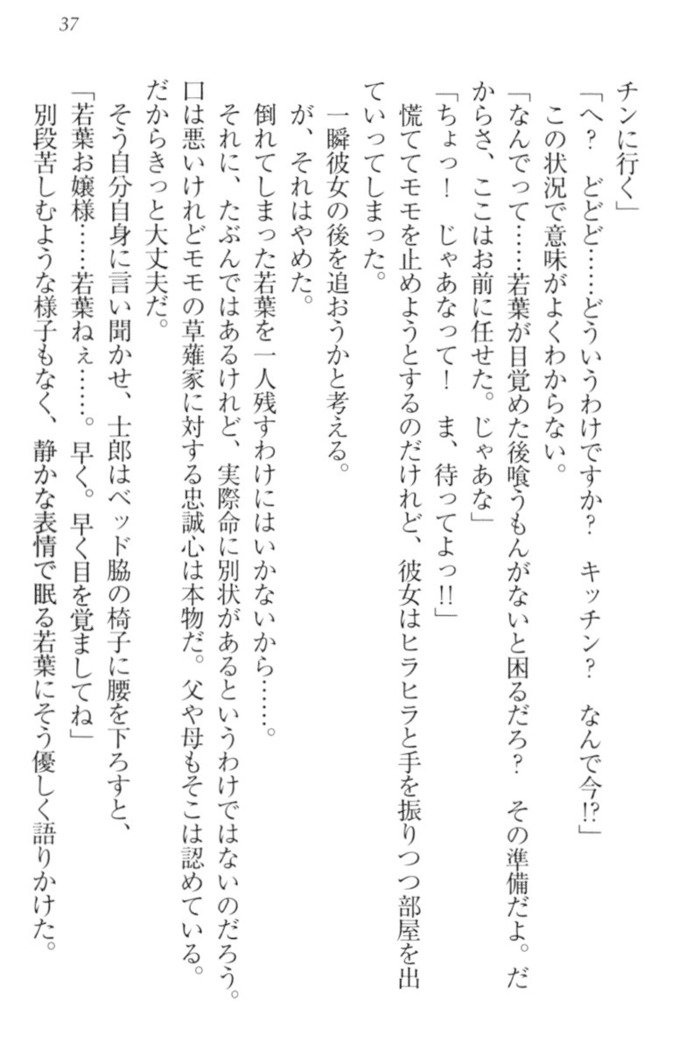 37
チンに行く」
「へ？　どどど……どういうわけですか？　キッチン？　なんで今!?」
この状況で意味がよくわからない。
「なんでって……若葉が目覚めた後喰うもんがないと困るだろ？　その準備だよ。だ
からさ、ここはお前に任せた。じゃあな」
「ちょっ！　じゃあなって！　ま、待ってよっ!!」
慌ててモモを止めようとするのだけれど、彼女はヒラヒラと手を振りつつ部屋を出
ていってしまった。
一瞬彼女の後を追おうかと考える。
が、それはやめた。
倒れてしまった若葉を一人残すわけにはいかないから……。
それに、たぶんではあるけれど、実際命に別状があるというわけではないのだろう。
口は悪いけれどモモの草薙家に対する忠誠心は本物だ。父や母もそこは認めている。
だからきっと大丈夫だ。
そう自分自身に言い聞かせ、士郎はベッド脇の椅子に腰を下ろすと、
「若葉お嬢様……若葉ねぇ……。早く。早く目を覚ましてね」
別段苦しむような様子もなく、静かな表情で眠る若葉にそう優しく語りかけた。